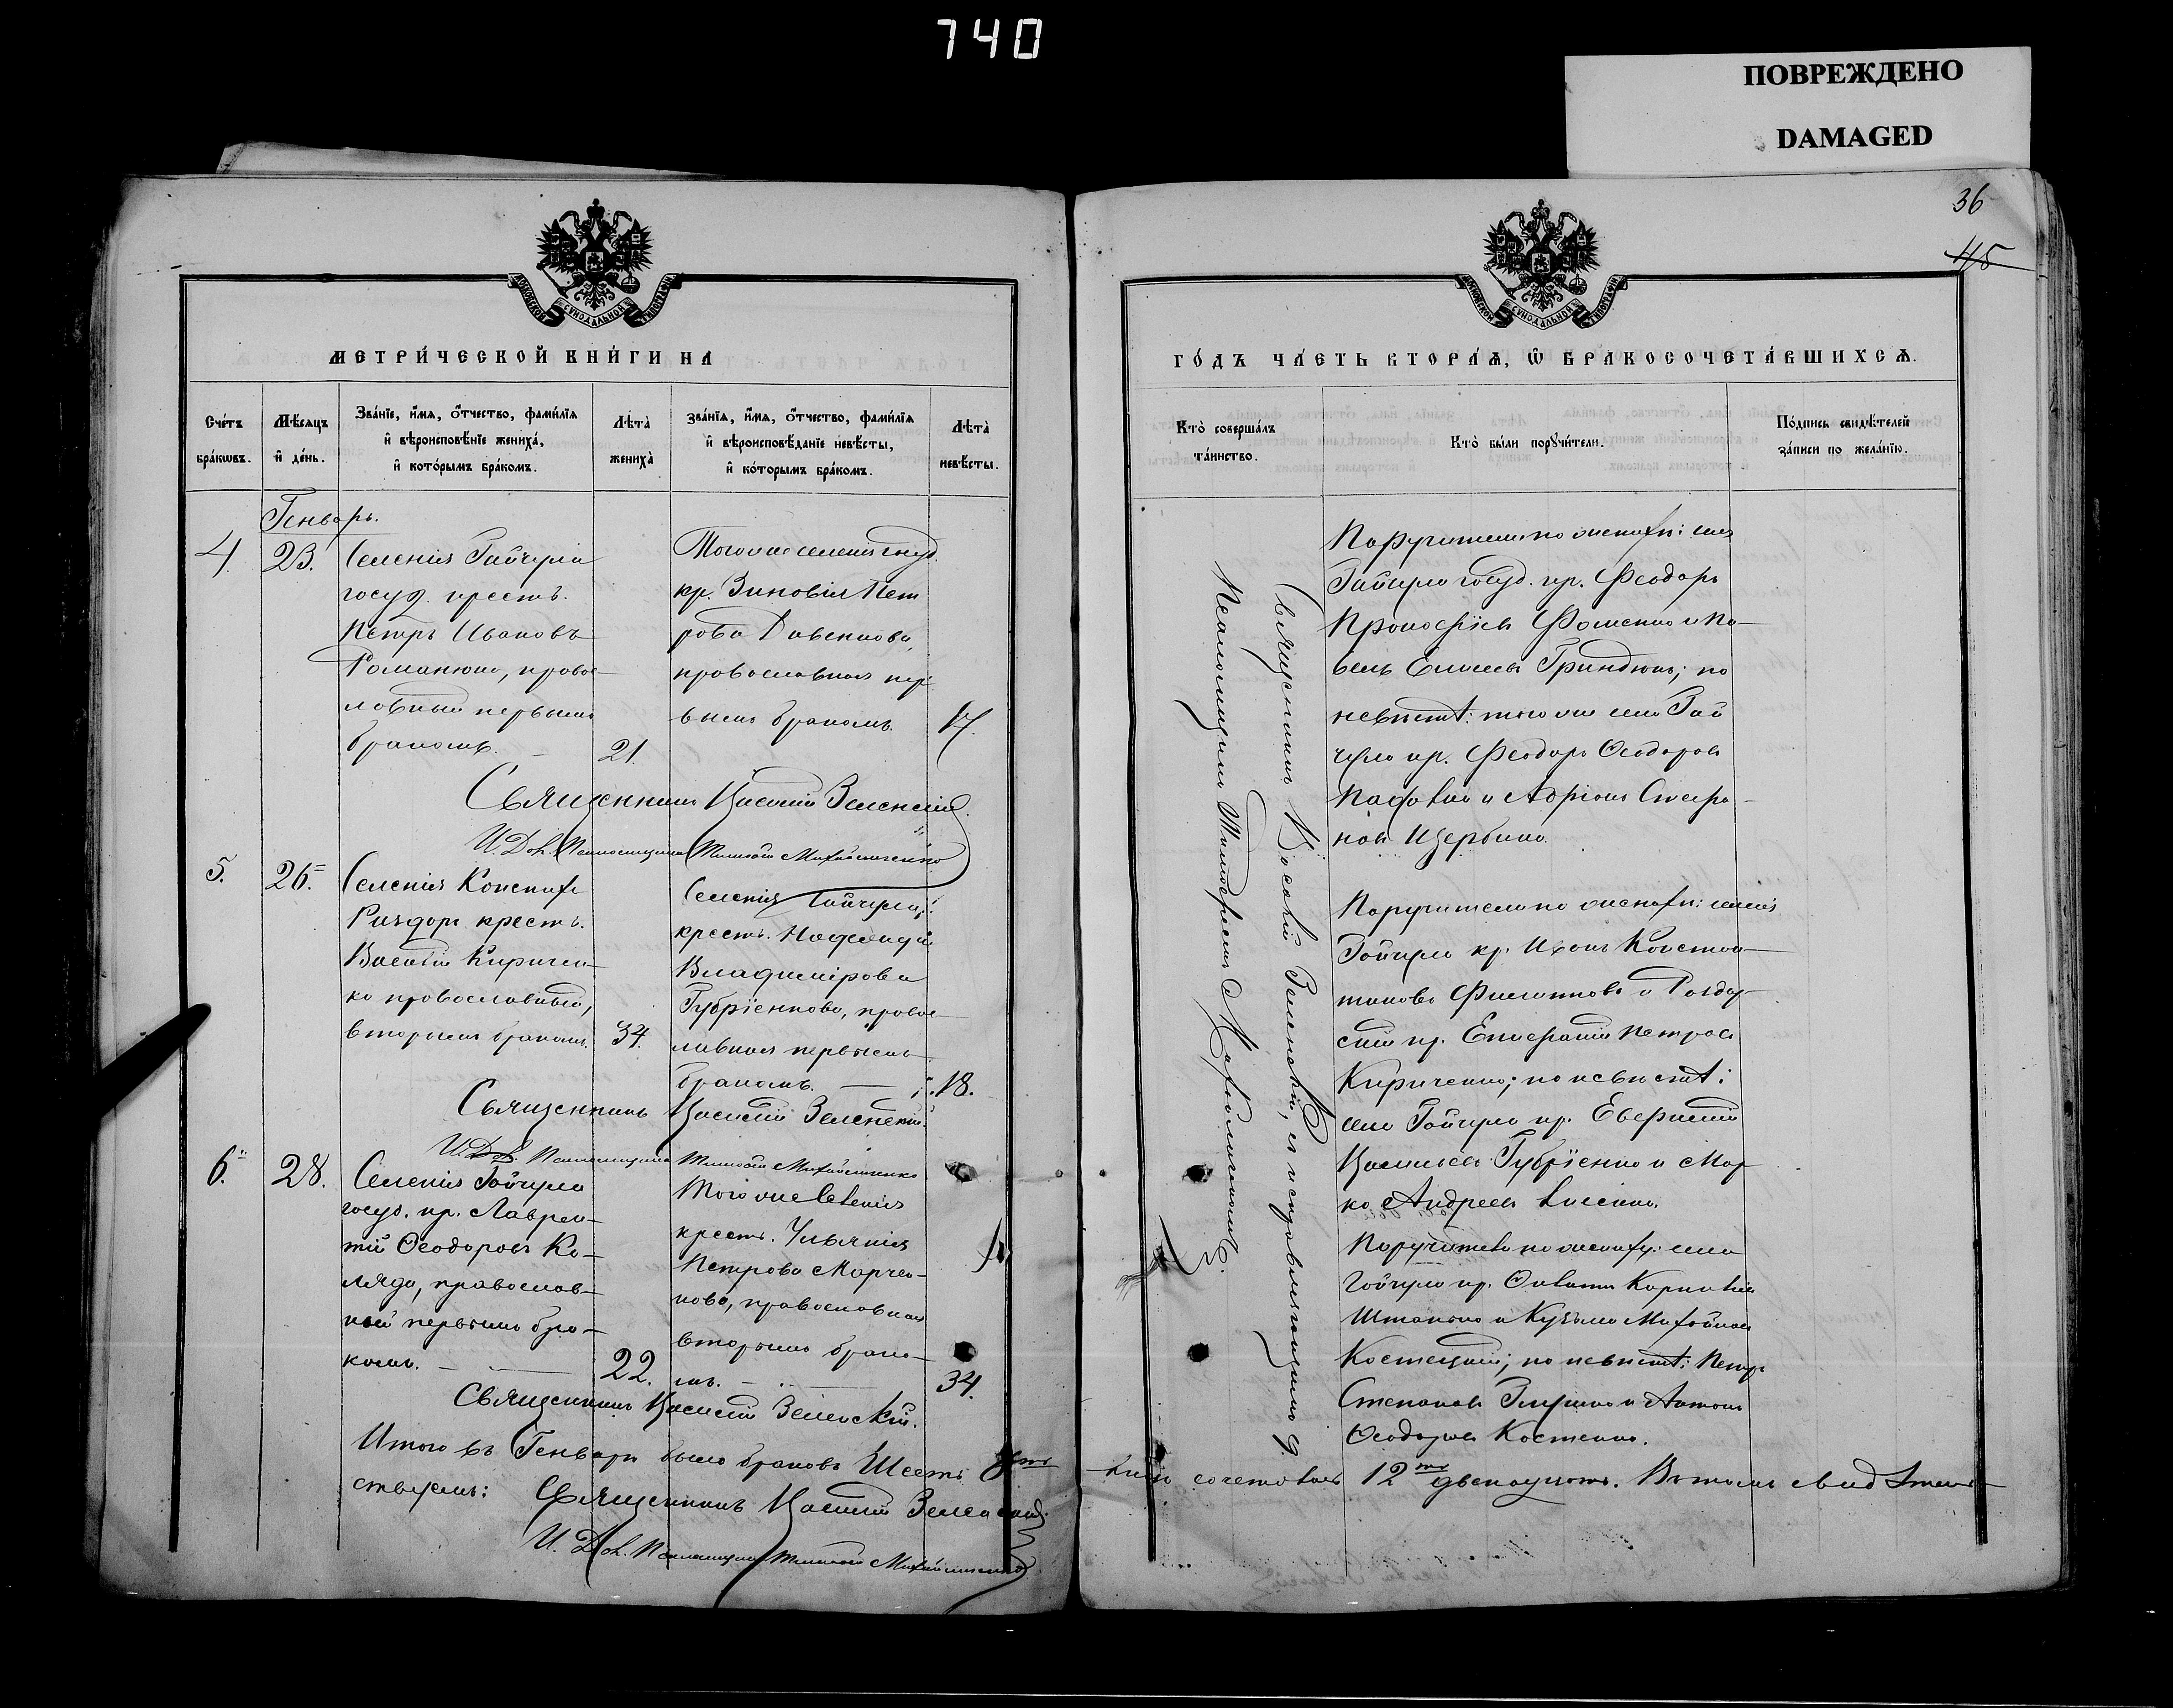 740
ПОВРЕЖДЕНО
DAMAGED
МОСКОВСКОЙ СѴНОДАЛЬНОЙ ТИПОГРАФІИ
МЕТРИ́ЧЕСКОЙ КНИ́ГИ НА
Сче́тъ
бра́кѡвъ.
Мѣ́сяцъ
и҆ де́нь.
Зва́нїе, и҆́мя, о҆́тчество, фами́лїя
и҆ вѣроисповѣ́нїе жениха̀,
и҆ кото́рымъ бра́комъ.
Лѣ́та
жениха̀
зва́нїя, и҆́мя, о҆́тчество, фами́лїя
и҆ вѣроисповѣ́данїе невѣ́сты,
и҆ ко́торымъ бра́комъ.
Лѣ́та
невѣ́сты.
Генварь.
4.
23.
Селенія Гайчула
госуд. крестъ.
Петръ Ивановъ
Романюко, правос-
лавный первымъ
бракомъ.
21.
Тогоже селенія госуд.
кр. Зиновія Пет
рова Давенкова,
православная пер
вымъ бракомъ.
17.
Священникъ Василій Зеленскій.
И. Дол. Псаломщика Тимофей Михайличенко
5.
26.
Селенія Конскихъ
Раздоръ крестъ.
Василій Киричен-
ко православный,
вторымъ бракомъ.
34.
Селенія Гайчула,
крестъ.
Владимірова
Губріенкова, правос-
лавная первымъ
бракомъ.
18.
Священникъ Василій Зеленскій.
И. Дол. Псаломщика Тимофей Михайличенко
6.
28.
Селенія Гайчула
госуд. кр. Лаврен-
тій Ѳеодоровъ Ко-
ляда, православ-
ный первымъ бра-
комъ.
22.
Того же Селенія
крест. Ульянія
Петрова Марчен-
кова, православная
вторымъ брако-
мъ.
34.
Священникъ Василій Зеленскій.
Итого въ Генварѣ было браковъ Шесть
ствуемъ:
Священникъ Василій Зеленскій.
И. Дол. Псаломщика Тимофей Михайличенко
36
45
МОСКОВСКОЙ СѴНОДАЛЬНОЙ ТИПОГРАФІИ
ГО́ДЪ ЧА́СТЬ ВТОРА́Ѧ, Ѽ БРАКОСОЧЕТА́ВШИХСѦ.
Кто̀ соверша́лъ
та́инство.
Кто̀ бы́ли порꙋчи́тели.
По́дпись свидѣ́телей
за́писи по жела́нїю.
Священникъ Василій Зеленскій, съ исправляющимъ д.
Псаломщика Тимофеемъ Михайличенкомъ.
Поручители по женихѣ: села
Гайчула госуд. кр. Феодоръ
Прокофіевъ Фоменко и Па-
велъ Елисеевъ Гриндюкъ; по
невѣстѣ: того же села Гай
чула кр. Феодоръ Ѳеодоровъ
и Адріанъ Стефа-
новъ Щербина.
Поручители по женихѣ: селенія
Гайчула кр. Иванъ Констан-
тиновъ и Раздор-
скій кр. Епифаній Петровъ
Кириченко; по невѣстѣ:
села Гайчула кр.
Васильевъ Губріенко и Мар-
ко Андреевъ
Поручители по жениху: села
Гайчула кр.
и Кузьма Михайловъ
Костецкій; по невѣстѣ: Петръ
Степановъ и Антонъ
Ѳеодоровъ Костенко.
сочетовалъ 12ть двенадцать. Въ томъ свидѣтель-